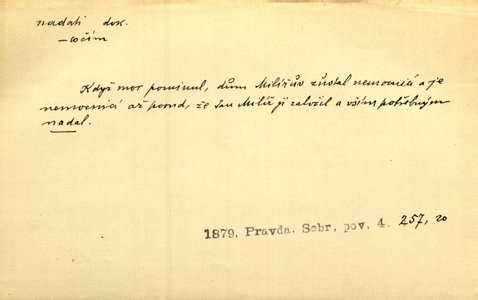 nadati dok.
– co čím
Když mor pominul, dům Milířův zůstal nemocnicí a je
nemocnicí až posud, že Jan Milíř ji založil a vším potřebným
nadal.
1879, Pravda. Sebr, pov. 4. 257, 20